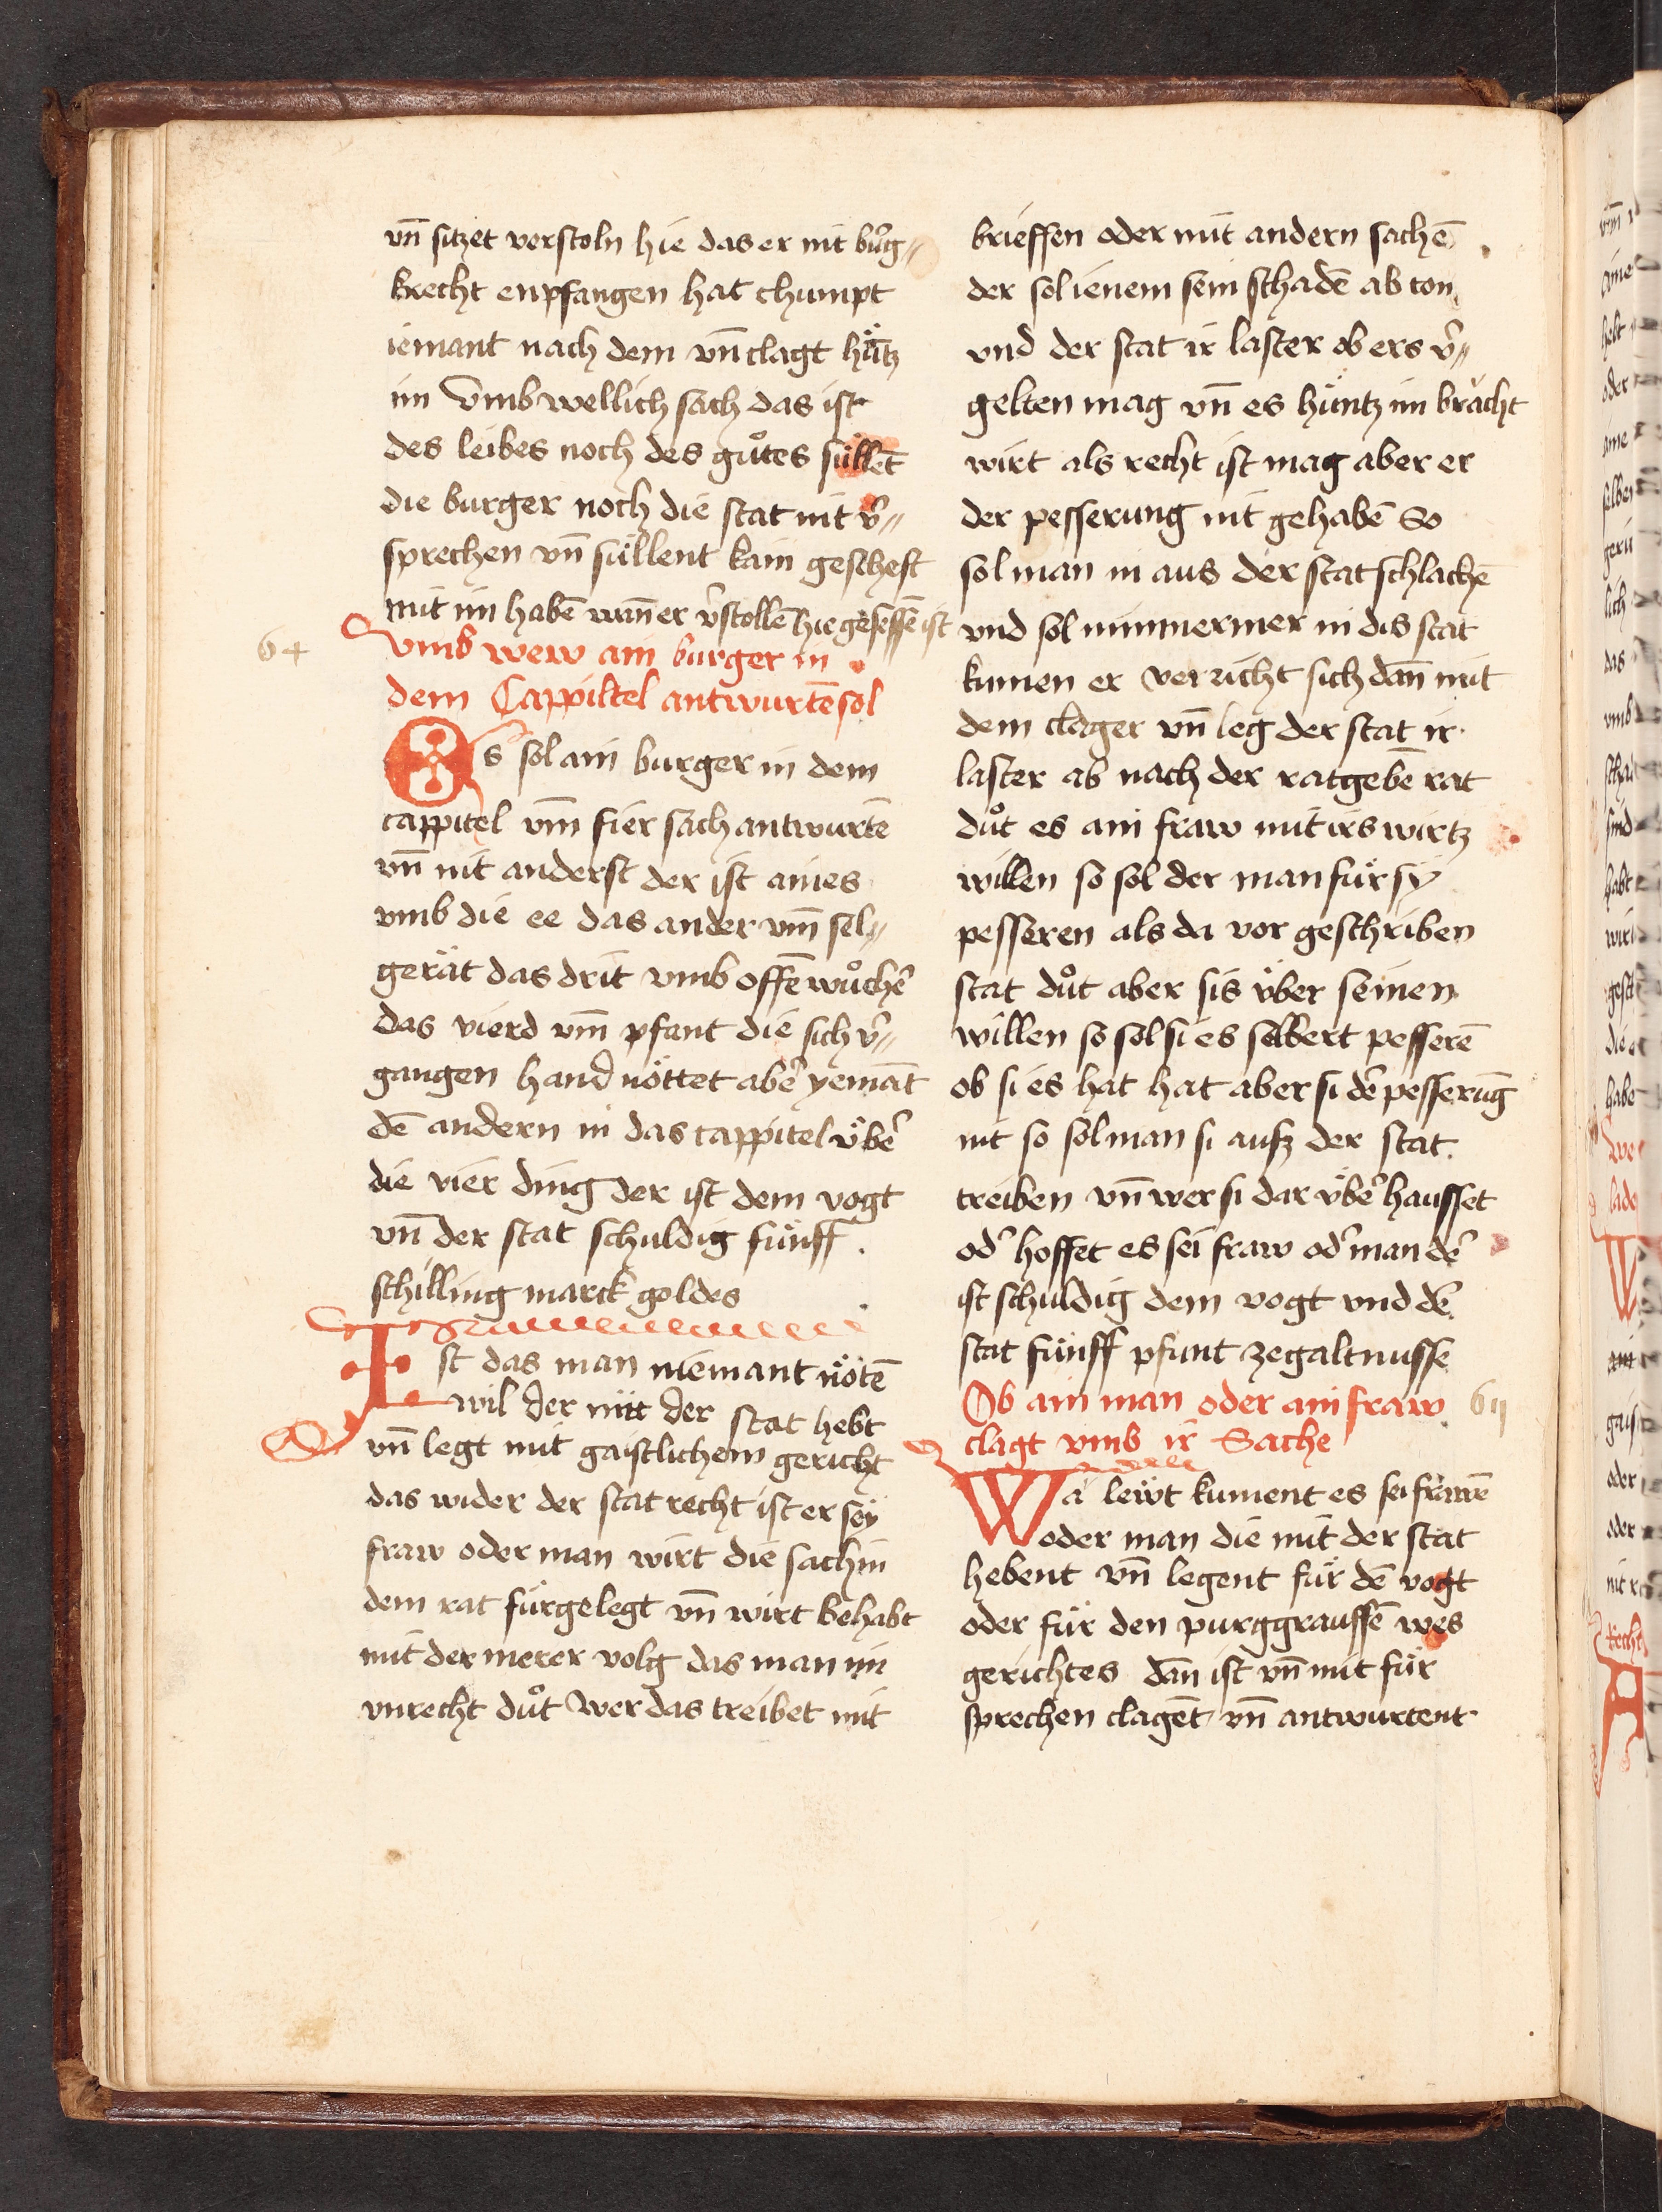 vn̄ sitzet verstoln hie das er nit bur̄g〃
krecht enpfangen hat chumpt
iemant nach dem vn̄ clagt hüntz
im Vmb wellich sach das ist
des leibes noch des guͦtes süllēt
die burger noch die stat nit v̄〃
sprechen vn̄ süllent kain gescheft
mit im habē wan̄ er v̄stollē hie gesessē ist
64
vmb wew ain burger in
dem Cappiltel antwurtē sol
Es sol ain burger in dem
cappitel vm̄ fier sach antwurtē
vn̄ nit anderst der ist aines
vmb die ee das ander vm̄ sel〃
gerät das drit vmb offē wuͦchē
das vierd vm̄ pfant die sich v̄〃
gangen hand nöttet abē yemāt
dē andern in das cappitel v̈bē
die vier ding der ist dem vogt
vn̄ der stat schuldig fünff
schilling marck goldes
Ist das man niemant nötē
wil der mit der stat hebt
vn̄ legt mit gaistlichem gericht
das wider der stat recht ist er sey
fraw oder man wirt die sach in
dem rat fürgelegt vn̄ wirt behabt
mit der merer volg das man im
vnrecht duͦt Wer das treibet mit
brieffen oder mit andern sachē
der sol ienem sein schadē ab ton
vnd der stat ir laster ob ers v̄〃
gelten mag vn̄ es hüntz im brächt
wirt als recht ist mag aber er
der pesserung nit gehabē So
sol man in aus der stat schlachē
vnd sol nimmermer in dis stat
kumen er verricht sich dan̄ mit
dem clager vn̄ leg der stat ir
laster ab nach der ratgebē rat
duͦt es ain fraw mit irs wirtz
willen so sol der man für sy
pesseren als da vor geschriben
stat duͦt aber sis v̈ber seinen
willen so sol si es selbert pesserē
ob si es hat hat aber si dē pesserūg
nit so sol man si ausz der stat
treiben vn̄ wer si dar v̈bē hausset
od̄ hoffet es sei fraw od̄ man dē
ist schuldig dem vogt vnd dē
stat fünff pfunt ze galtnusse
Ob ain man oder ain fraw
6ij
clagt vmb ir Sache
Wa lewt kument es sei frawē
oder man die mit der stat
hebent vn̄ legent für dē vogt
oder für den purggraffē wes
gerichtes dan ist vn̄ mit für
sprechen clagēt vn̄ antwurtent